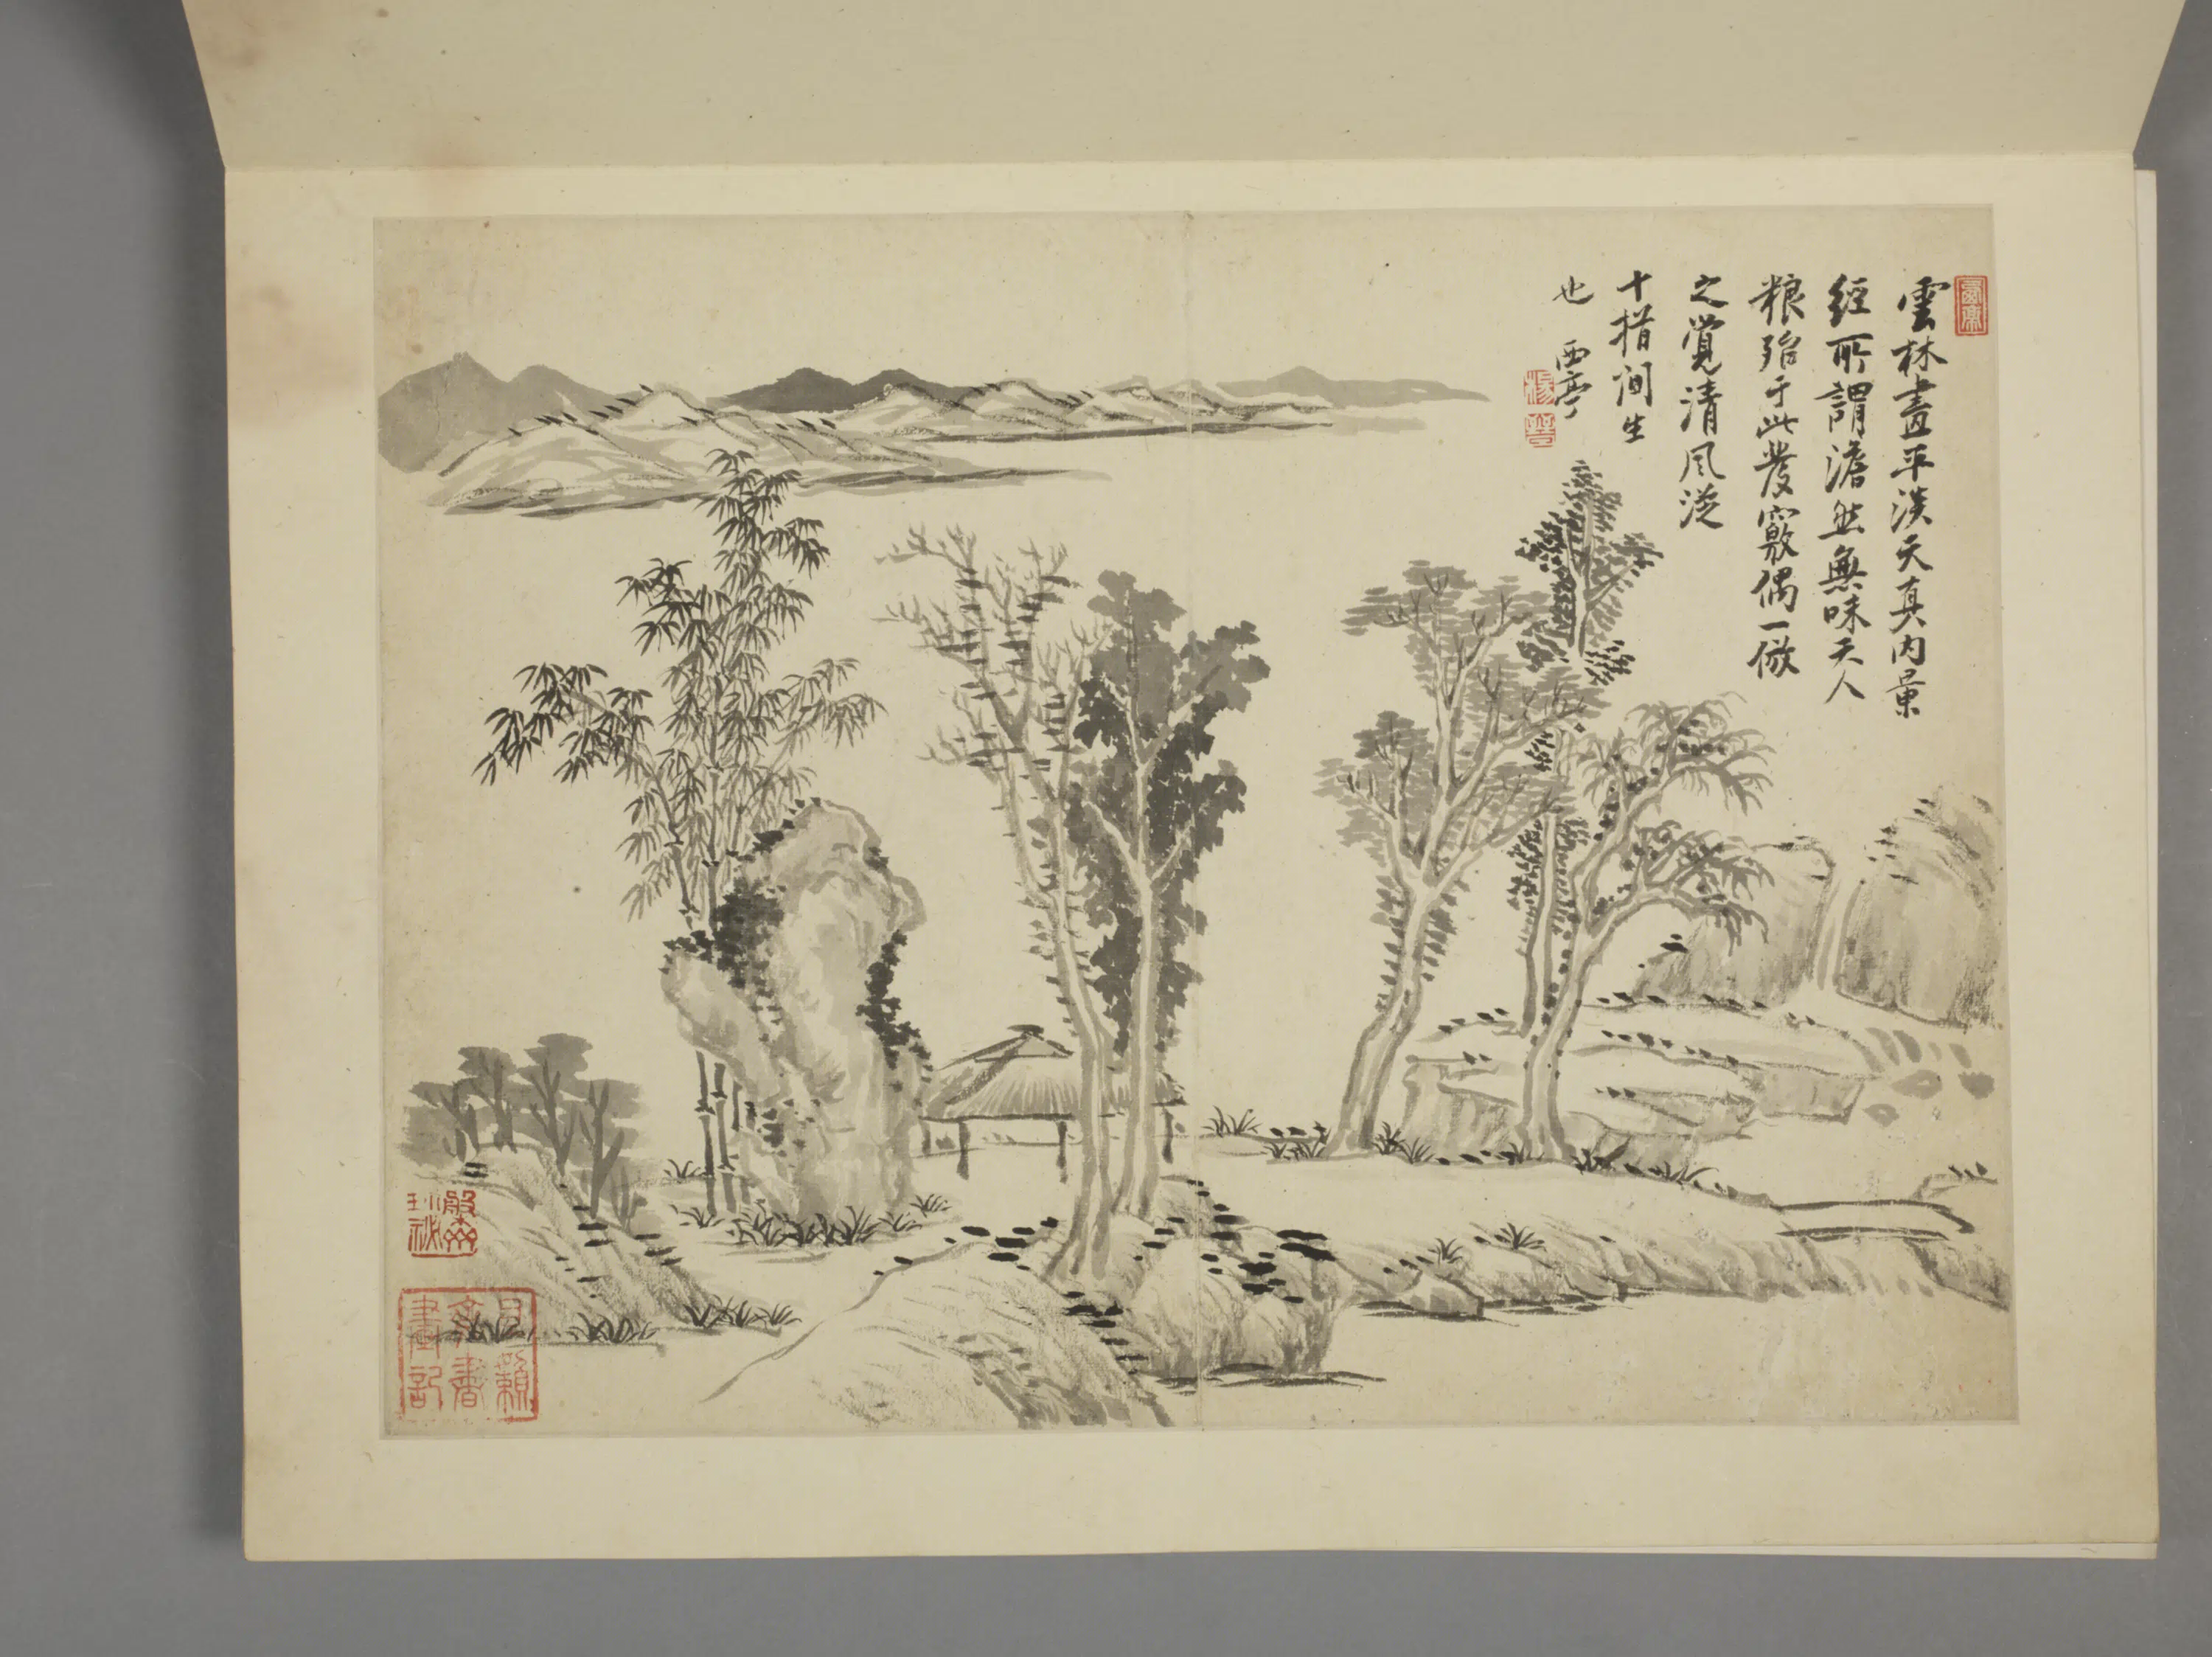 雲林畫平淡天真内景
經所謂澹然無味天人
粮殆于此發竅偶一倣
之覺清風泛
十指间生
也 西亭
楊晉